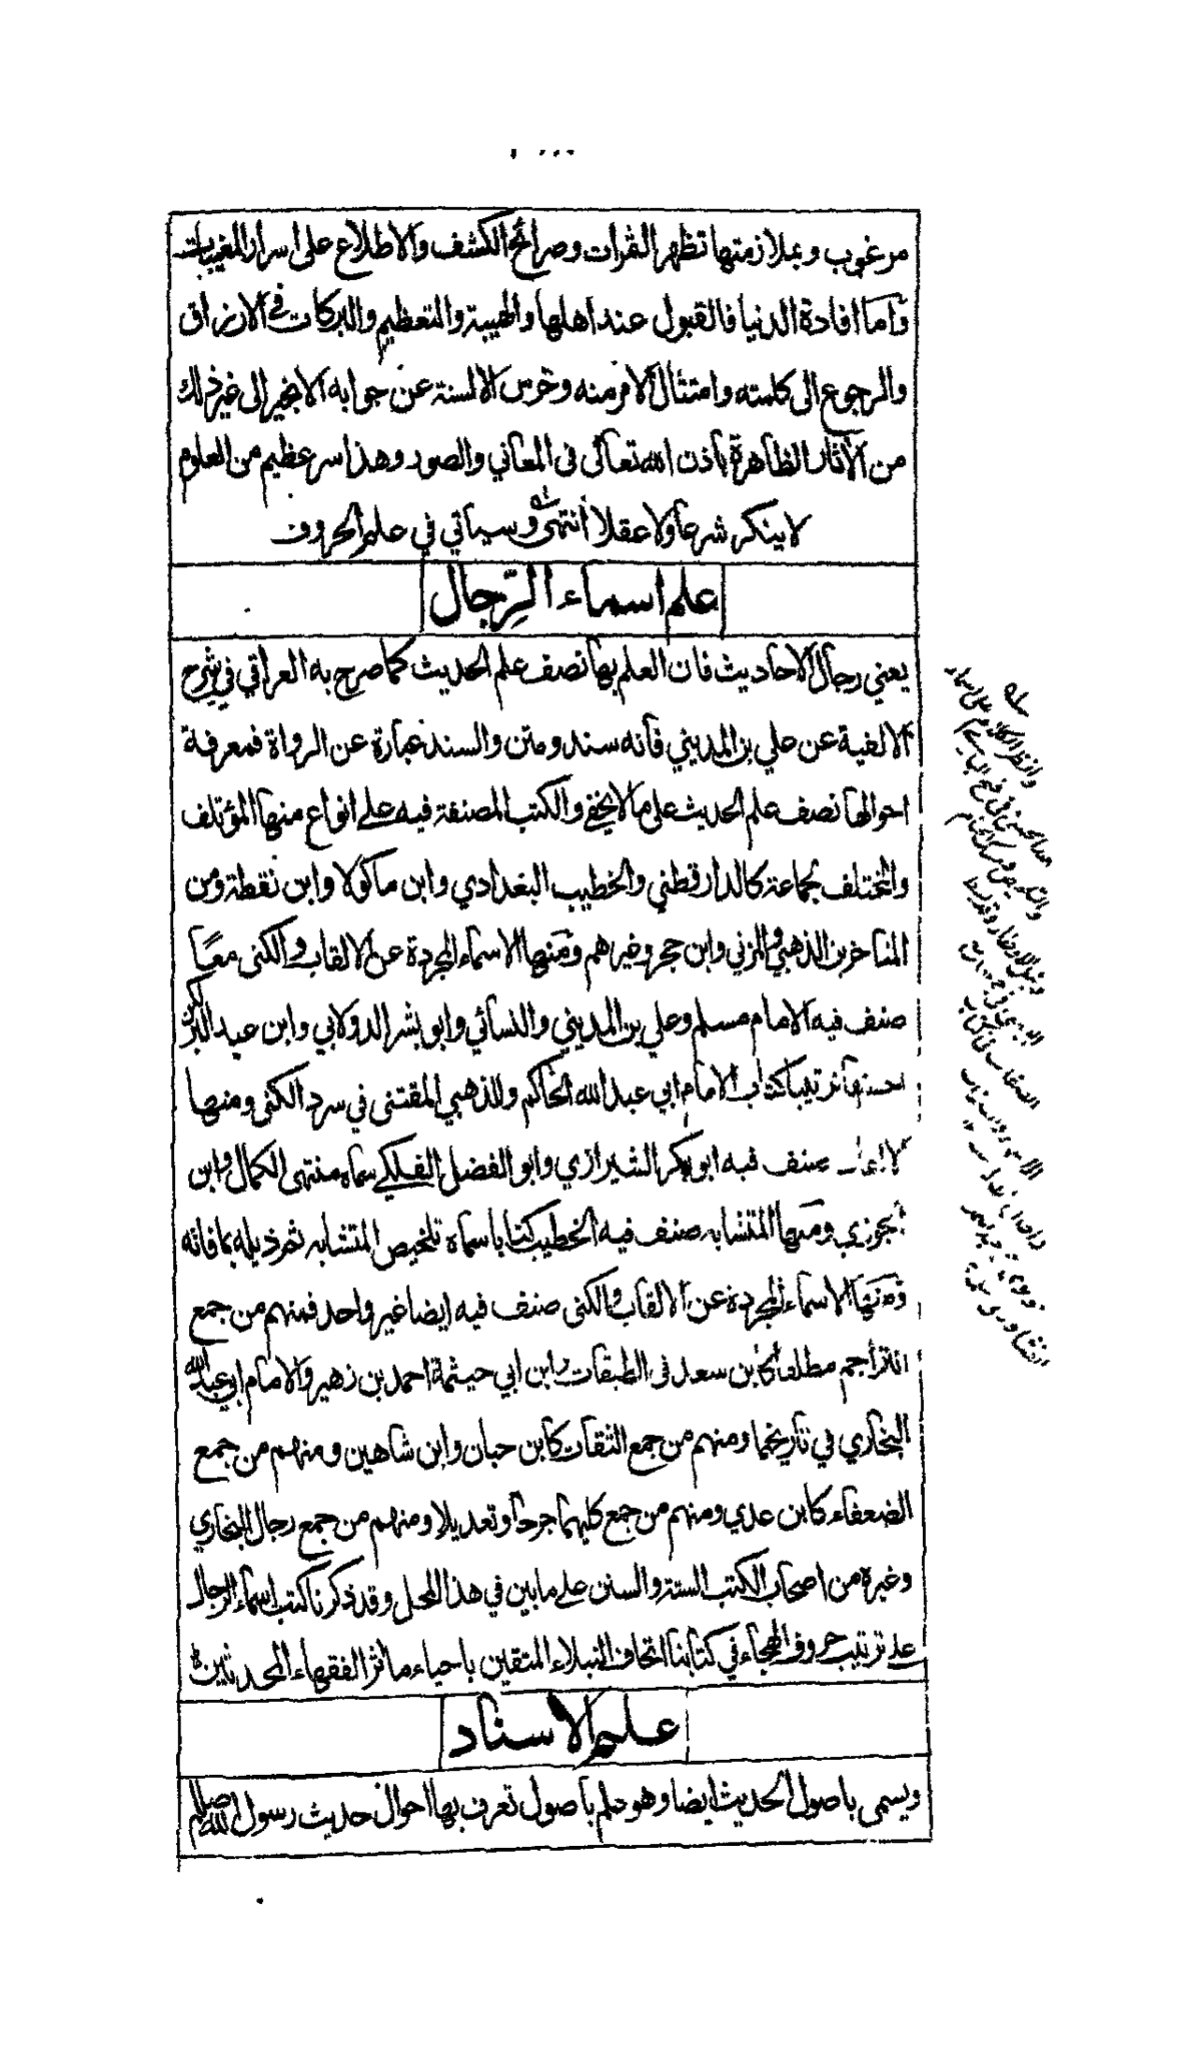 مرغوب وبملازمتها تظهر الثمرات وصرائح الكشف والاطلاع على اسرار المغيبات
واما افادة الدنيا فالقبول عند اهلها والهيبة والتعظيم والبركات في الارزاق
والرجوع الى كلمته وامتثال الامر منه وخرس الالسنة عن جوابه الا بخير الى غير ذلك
من الآثار الظاهرة باذن الله تعالى فى المعاني والصور وهذا سر عظيم من العلوم
لا ينكر شرعا ولا عقلا انتهى وسيأتي في علم الحروف
علم اسماء الرِّجال
يعني رجال الاحاديث فان العلم بها نصف علم الحديث كما صرح به العراقي في شرح
الالفية عن علي بن المديني فانه سند ومتن والسند عبارة عن الرواة فمعرفة
احوالها نصف علم الحديث على ما لا يخفى والكتب المصنفة فيه على انواع منها المؤتلف
والمختلف لجماعة كالدارقطني والخطيب البغدادي وابن ماكولا وابن نقطة ومن
المتاخرين الذهبي والمزني وابن حجر وغيرهم ومنها الاسماء المجردة عن الالقاب والكنى معًا
صنف فيه الامام مسلم وعلي بن المديني والنسائي وابو بشر الدولابي وابن عبد البر لكن
احسنها ترتيبا كتاب الامام ابي عبد الله الحاكم وللذهبي المقتنى في سرد الكنى ومنها
الالقاب صنف فيه ابو بكر الشيرازي وابو الفضل الفلكي سماه منتهى الكمال وابن
الجوزي ومنها المتشابه صنف فيه الخطيب كتابا سماه تلخيص المتشابه ثم ذيله بما فاته
ومنها الاسماء المجردة عن الالقاب والكنى صنف فيه ايضا غير واحد فمنهم من جمع
التراجم مطلقا كابن سعد فى الطبقات وابن ابي حيثمة احمد بن زهير والامام ابي عبد الله
البخاري في تاريخهما ومنهم من جمع الثقات كابن حبان وابن شاهين ومنهم من جمع
الضعفاء كابن عدي ومنهم من جمع كليهما جرحا وتعديلا ومنهم من جمع رجال البخاري
وغيره من اصحاب الكتب الستة والسنن على ما بين في هذا المحل وقد ذكرنا كتب اسماء الرجال
على ترتيب حروف الهجاء في كتابنا اتحاف النبلاء المتقين باحياء مآثر الفقهاء المحدثين
علم الاسناد
ويسمى باصول الحديث ايضا وهو علم باصول تعرف بها احوال حديث رسول الله صلى